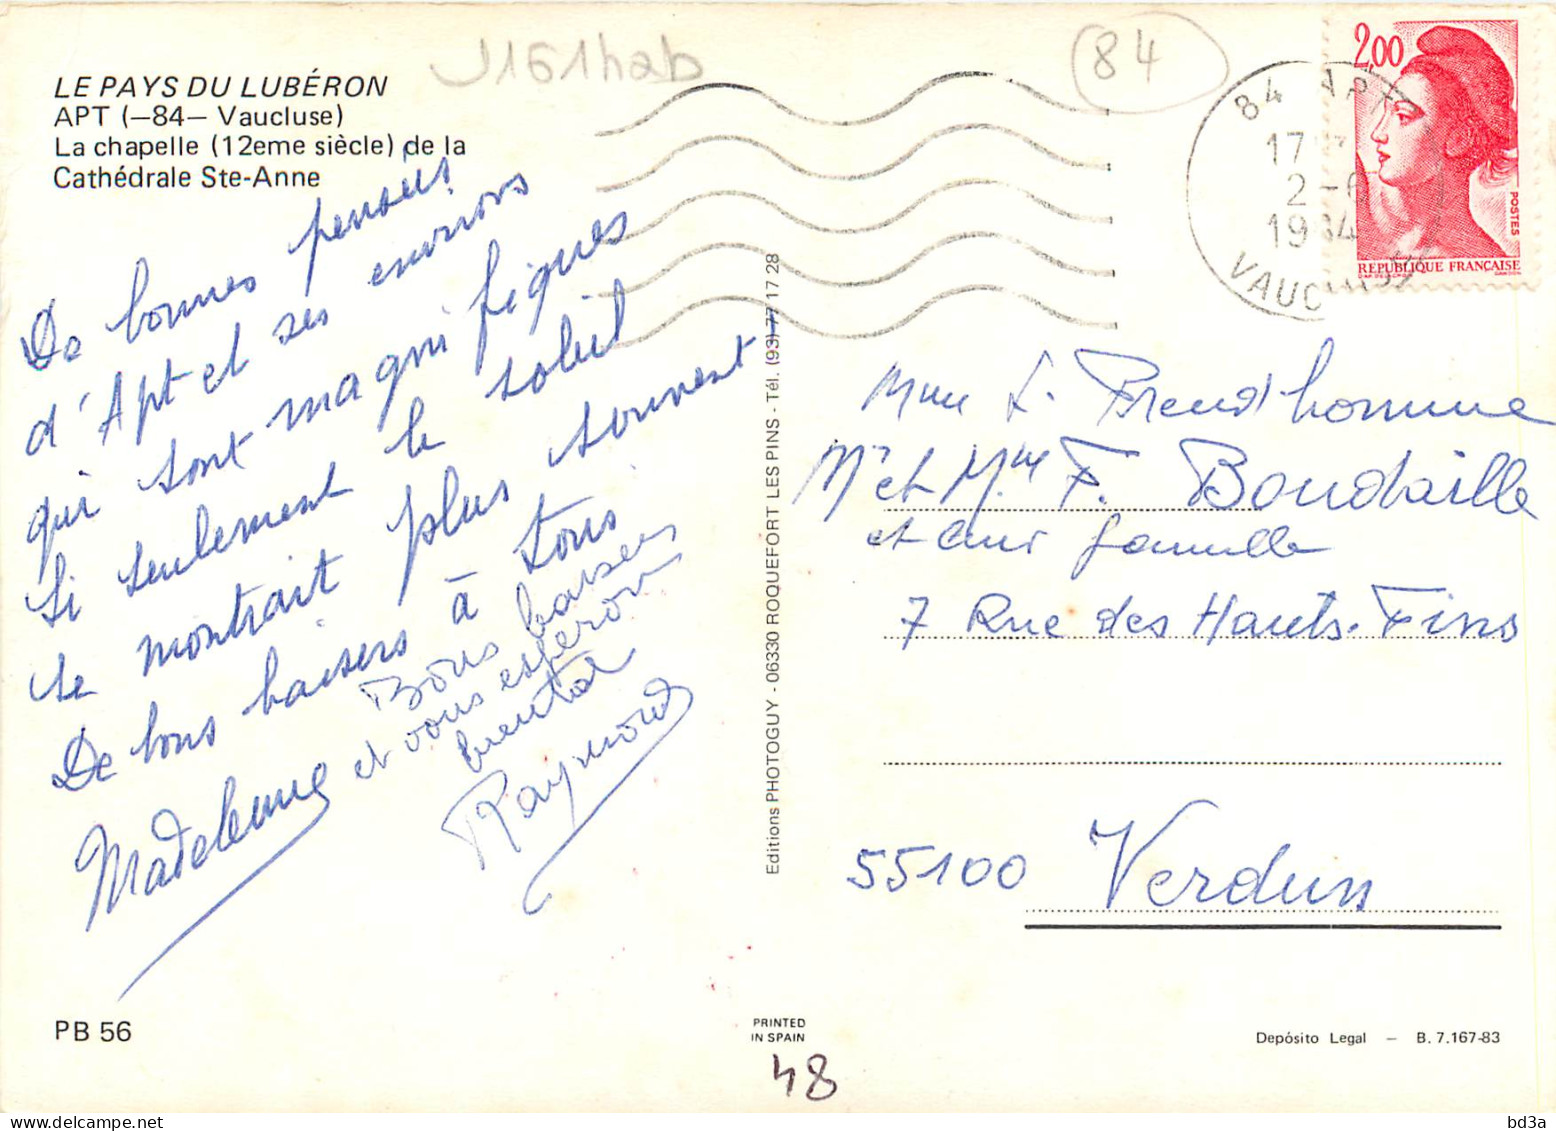 LE PAYS DU LUBÉRON
APT (—84— Vaucluse)
La chapelle (12eme siècle) de la
Cathédrale Ste-Anne
De bonnes pensées
d'Apt et ses environs
qui sont magnifiques
Si seulement le soleil
se montrait plus souvent
De bons baisers à tous
Madeleine
Bons baisers
et vous espérons
bientôt
Raymond
PB 56
Editions PHOTOGUY - 06330 ROQUEFORT LES PINS - Tél. (93) 77 17 28
PRINTED
IN SPAIN
48
84
84 APT
17
2-6
1984
VAUCLUSE
2,00
POSTES
REPUBLIQUE FRANÇAISE
Mme L. Preud'homme
Mr et Mme F. Boudaille
et leur famille
7 Rue des Hauts-Fins
55100 Verdun
Depósito Legal — B. 7.167-83
bd3a